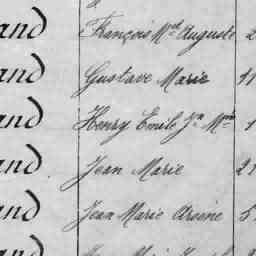 and François Mel Auguste 2
and Gustave Marie 11
and Henry Emile Jn Mie 1
and Jean Marie 21
and Jean Marie Arsène 5
and